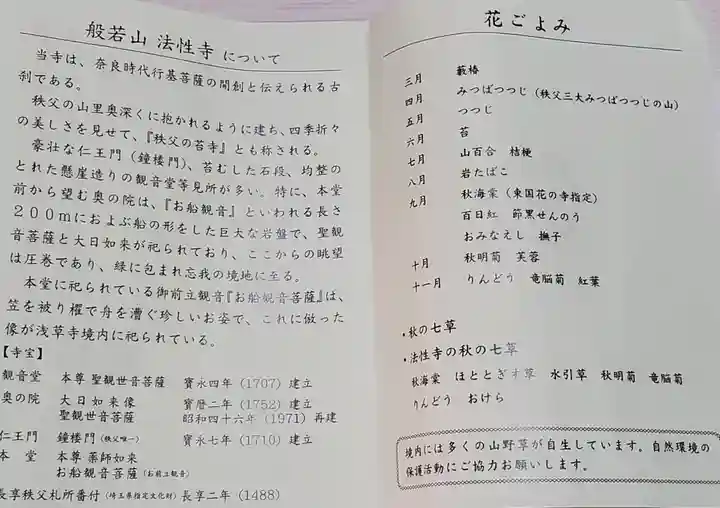 般若山 法性寺 について
当寺は、奈良時代行基菩薩の開創と伝えられる古
刹である。
秩父の山里奥深くに抱かれるように建ち、四季折々
の美しさを見せて、『秩父の苔寺』とも称される。
豪壮な仁王門（鐘楼門）、苔むした石段、均整の
とれた懸崖造りの観音堂等見所が多い。特に、本堂
前から望む奥の院は、『お船観音』といわれる長さ
２００ｍにおよぶ船の形をした巨大な岩盤で、聖観
音菩薩と大日如来が祀られており、ここからの眺望
は圧巻であり、緑に包まれ忘我の境地に至る。
本堂に祀られている御前立観音『お船観音菩薩』は、
笠を被り櫂で舟を漕ぐ珍しいお姿で、これに倣った
像が浅草寺境内に祀られている。
【寺宝】
観音堂 本尊 聖観世音菩薩 寶永四年（1707）建立
奥の院 大日如来像 寶暦二年（1752）建立
聖観世音菩薩 昭和四十六年（1971）再建
仁王門 鐘楼門（秩父唯一） 寶永七年（1710）建立
本 堂 本尊 薬師如来
お船観音菩薩（お前立観音）
長享秩父札所番付（埼玉県指定文化財）長享二年（1488）
花ごよみ
三月 藪椿
四月 みつばつつじ（秩父三大みつばつつじの山）
五月 つつじ
六月 苔
七月 山百合 桔梗
八月 岩たばこ
九月 秋海棠（東国花の寺指定）
百日紅 節黒せんのう
おみなえし 撫子
十月 秋明菊 芙蓉
十一月 りんどう 竜脳菊 紅葉
・秋の七草
・法性寺の秋の七草
秋海棠 ほととぎす草 水引草 秋明菊 竜脳菊
りんどう おけら
境内には多くの山野草が自生しています。自然環境の
保護活動にご協力お願いします。